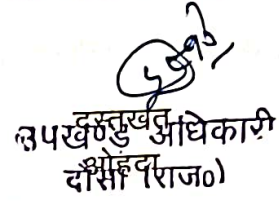 दस्तखत
उपखण्ड अधिकारी
ओहदा
दौसा (राज०)